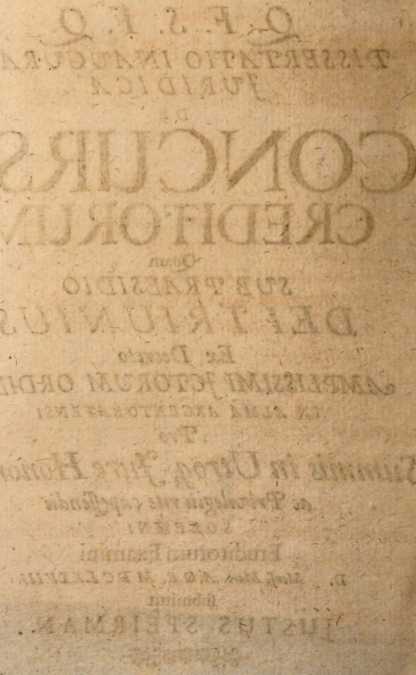 Q. F. S. F. Q.
DISSERTATIO INAUGURA
JURIDICA
DE
CONCURS
CREDITORUM
Quam
SUB PRAESIDIO
DEI TRIUNIUS
Ex Decreto
AMPLISSIMI JCTORUM ORDI
IN ALMA ARGENTORATENSI
Pro
Summis in Utroq; Jure Honor
ac Privilegiis rite capessendis
SOLENNI
Eruditorum Examini
D. Mens. M DC LXXVIII.
submittit
JUSTUS SPEIRMAN.